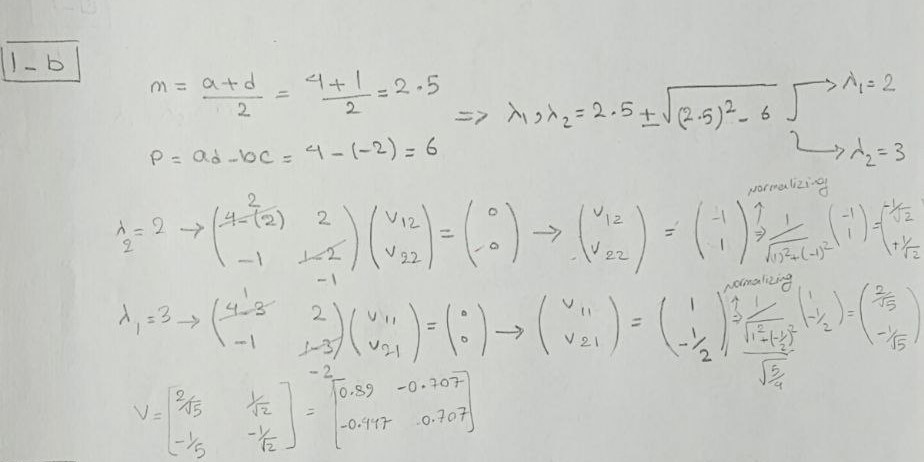 1-b
m = a+d/2 = 4+1/2 = 2.5
P = ad-bc = 4-(-2) = 6
=> λ₁,λ₂ = 2.5 ± √((2.5)² - 6) → λ₁ = 2
→ λ₂ = 3
λ₂ = 2 → (4-(2) 2 2; -1 1-2 -1)(V12; V22) = (0; 0) → (V12; V22) = (-1; 1) normalizing ⇒ 1/√(1)²+(-1)² (-1; 1) = (-1/√2; +1/√2)
λ₁ = 3 → (4-3 1 2; -1 1-3 -2)(V11; V21) = (0; 0) → (V11; V21) = (1; -1/2) normalizing ⇒ 1/√1²+(-1/2)² √5/4 (1; -1/2) = (2/√5; -1/√5)
V = [2/√5 1/√2; -1/5 -1/√2] = [0.89 -0.707; -0.447 0.707]